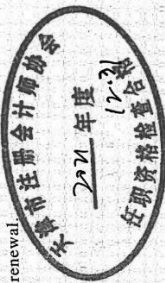 renewal.
天津市注册会计师协会
2021 年度
12.31
任职资格检查合格